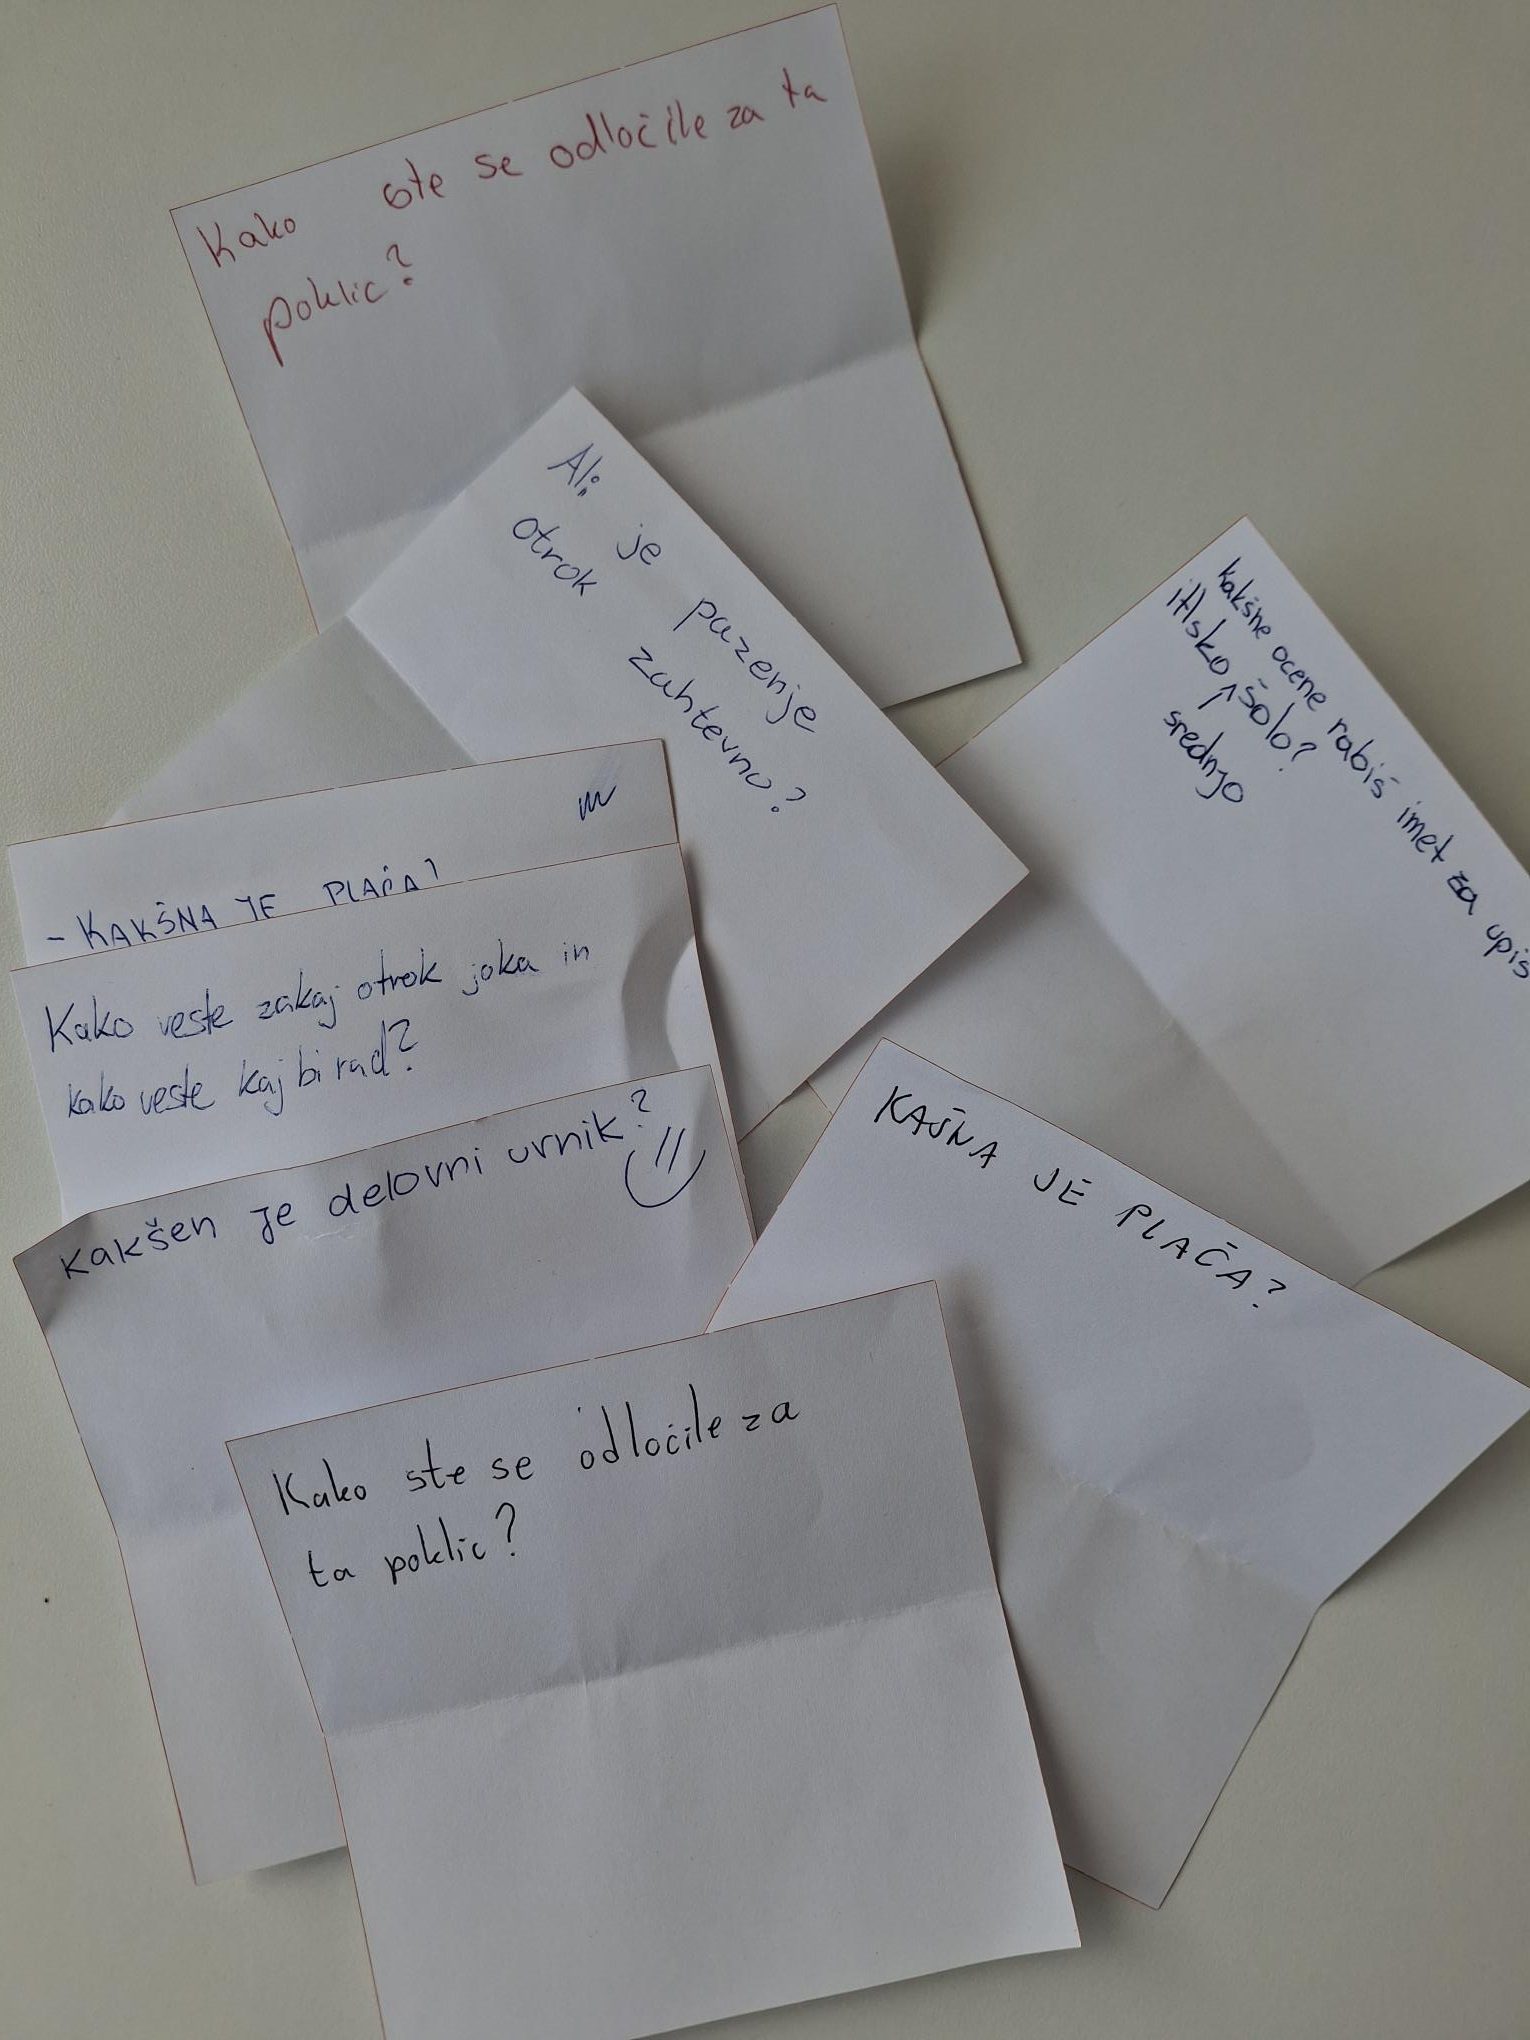 Kako ste se odločile za ta
poklic?
Ali je pazenje
otrok zahtevno?
kakšne ocene rabiš imet za upis
srednjo
šolo?
- KAKŠNA JE PLAČA?
Kako veste zakaj otrok joka in
kako veste kaj bi rad?
kakšen je delovni urnik?
KAŠNA JE PLAČA?
Kako ste se odločile za
ta poklic?